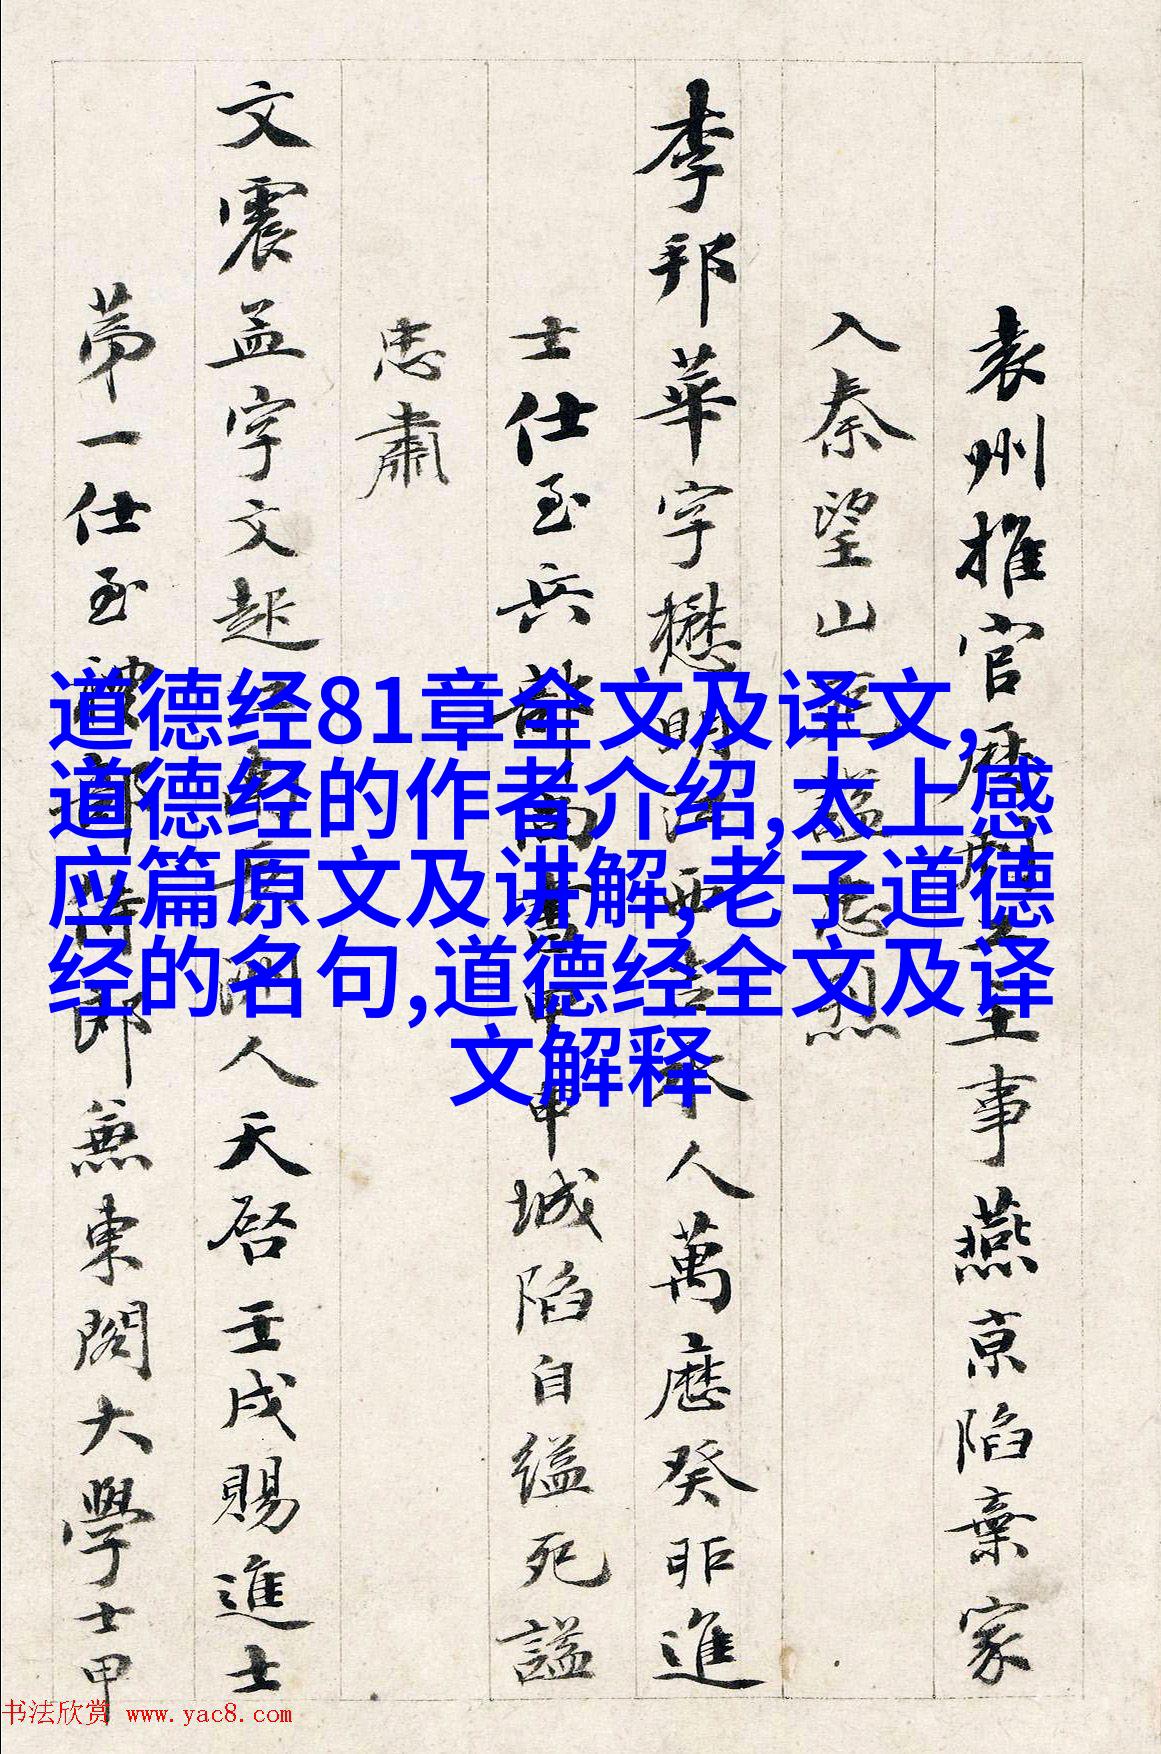 袁州推官歷刑主事燕京陷棄家
入秦望山死謚忠烈
李邦華字懋明江西吉水人萬曆癸卯進
士仕至兵部尚書甲申城陷自縊死謚
忠肅
文震孟字文起人天啓壬戌賜進士
第一仕至禮部侍郎兼東閣大學士甲
道德经81章全文及译文,
道德经的作者介绍,太上感
应篇原文及讲解,老子道德
经的名句,道德经全文及译
文解释
书法欣赏 www.yac8.com